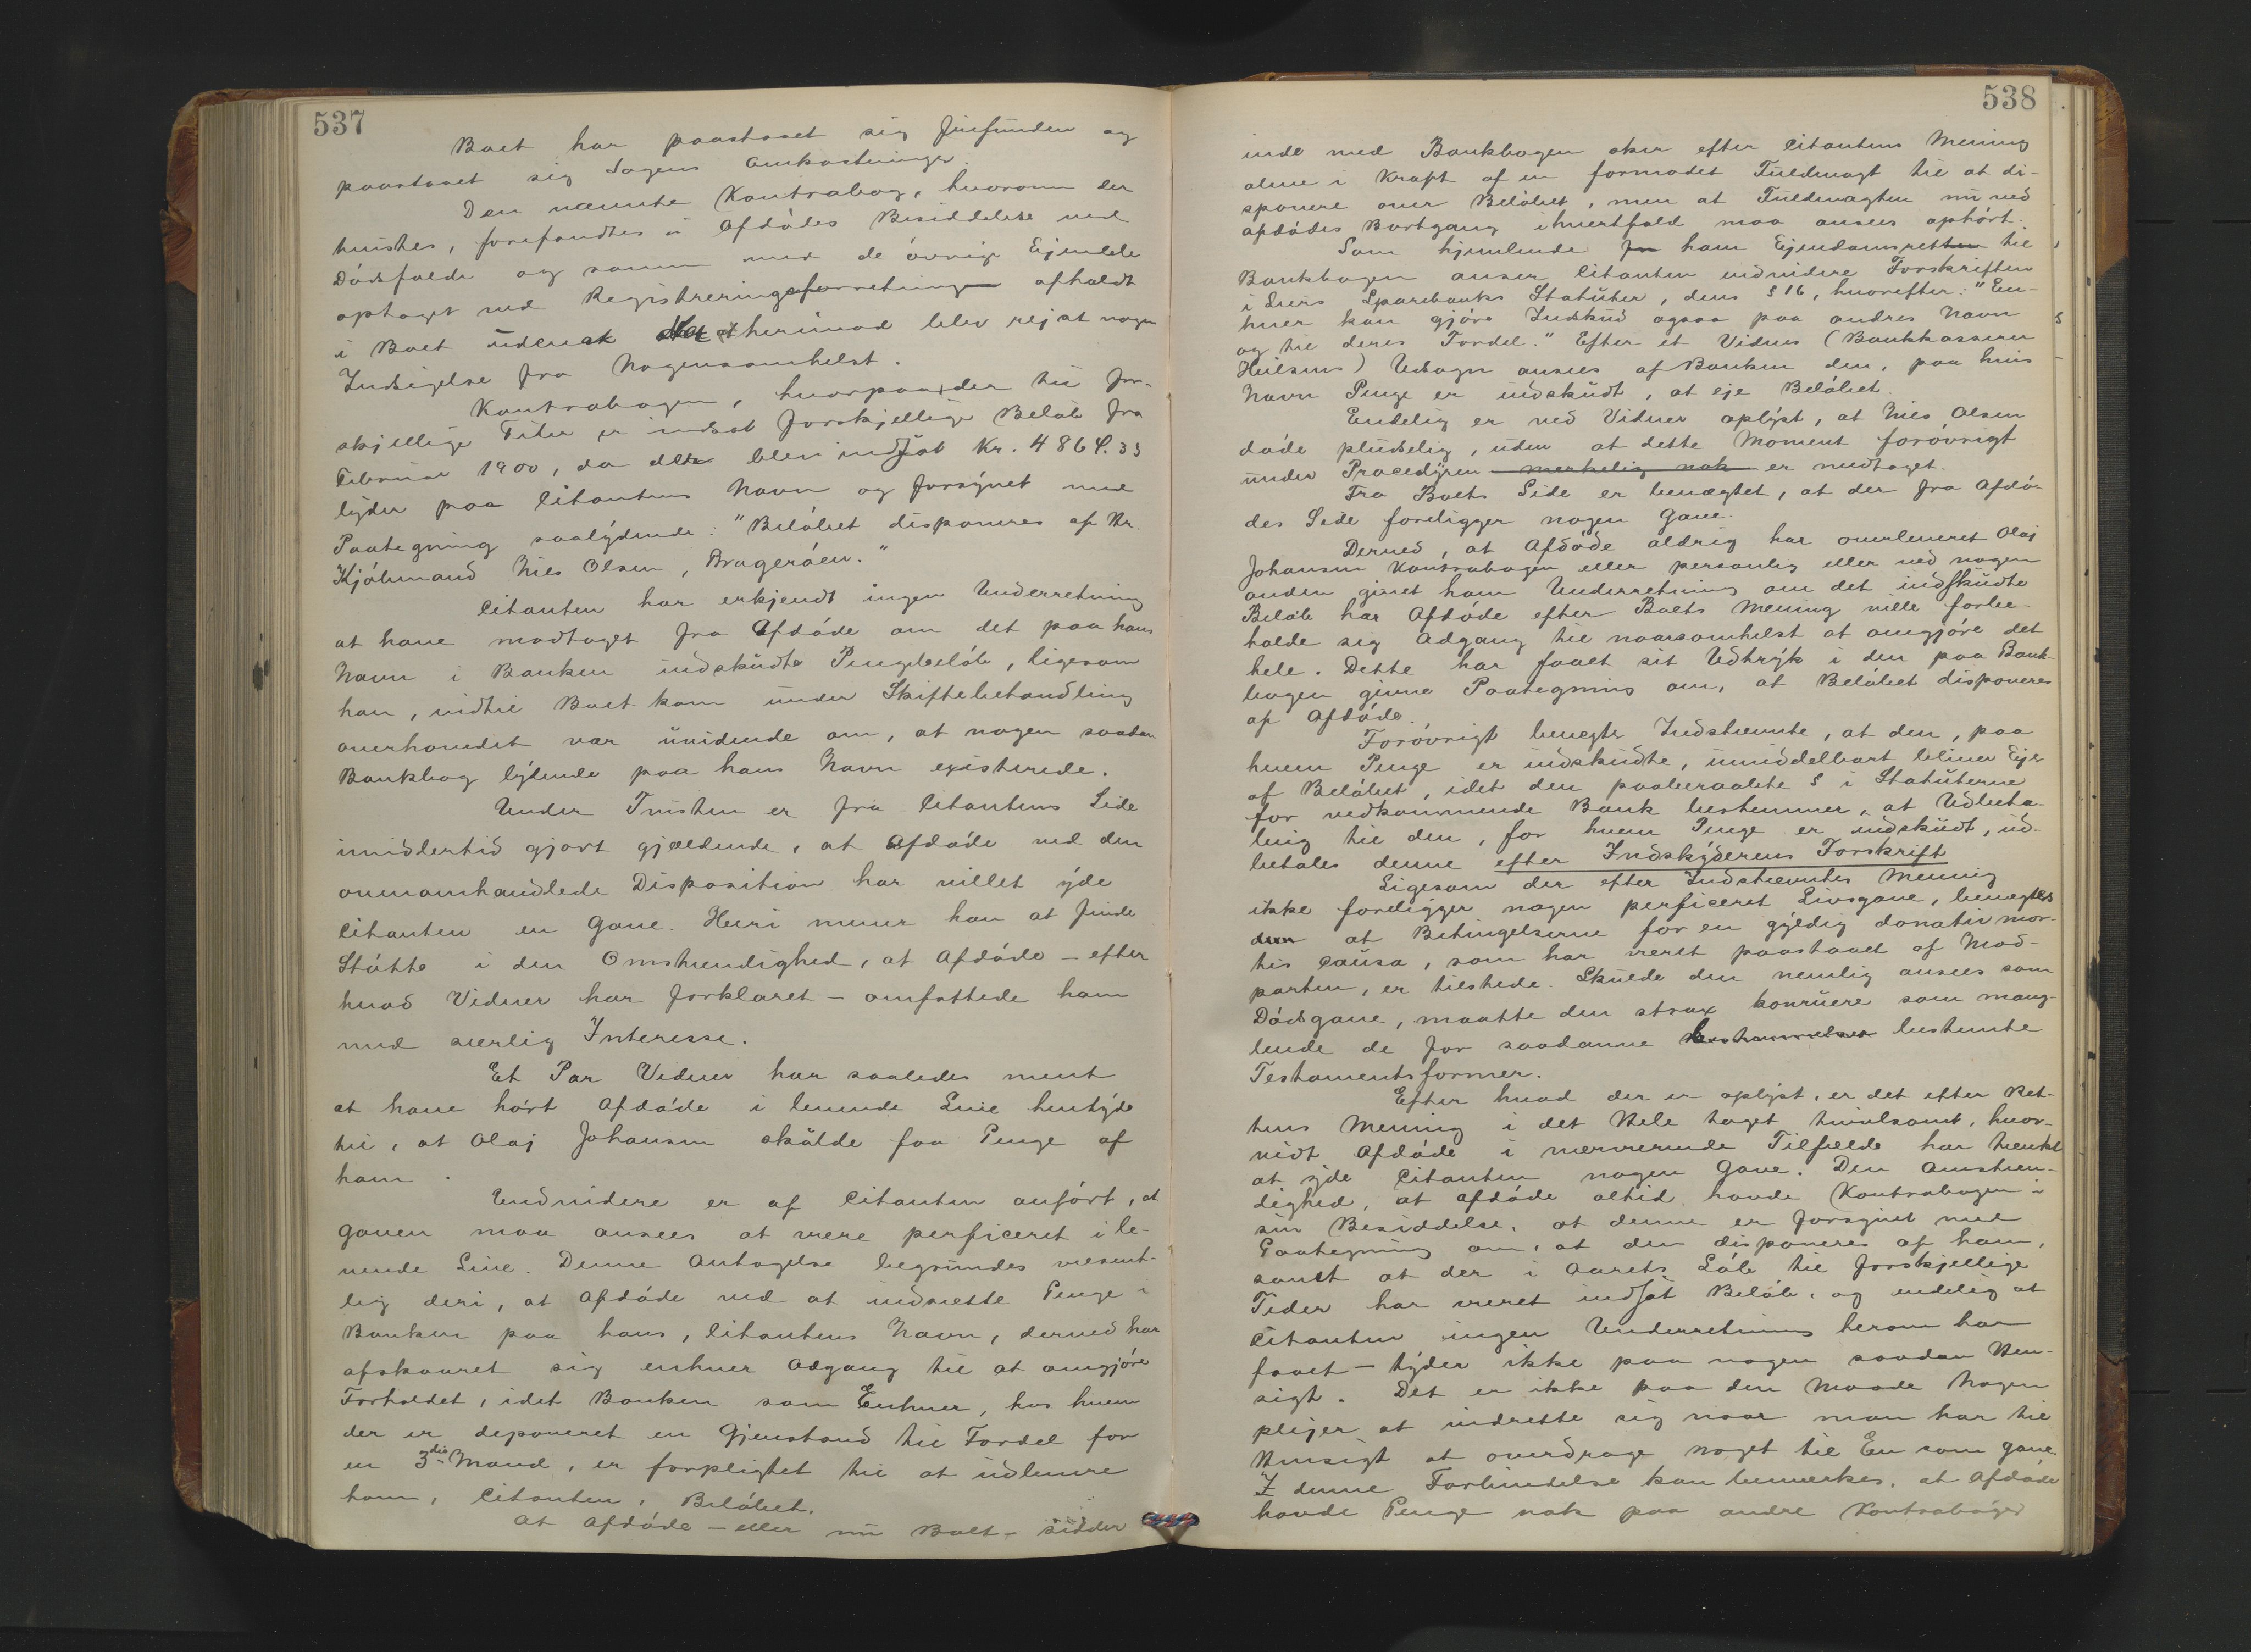 537
Boet har paastaaet sig frifunden og
paastaaet sig Sagens Omkostninger.
Den nævnte Kontrabog, hvorom der
tvistes, forefandtes i Afdødes Besiddelse ved
Dødsfaldet og sammen med de øvrige Ejendele
optaget ved Registreringsforretningen afholdt
i Boet uden at der herimod blev rejst nogen
Indsigelse fra Nogensomhelst.
Kontrabogen, hvorpaa der til for-
skjellige Tider er indsat forskjellige Beløb fra
Februar 1900, da der blev indsat Kr. 4864.33
lyder paa Citantens Navn og forsynet med
Paategning saalydende: "Beløbet disponeres af Hr.
Kjøbmand Nils Olsen, Bragerøen."
Citanten har erkjendt ingen Underretning
at have modtaget fra Afdøde om det paa hans
Navn i Banken indskudte Pengebeløb, ligesom
han, indtil Boet kom under Skiftebehandling
overhovedet var uvidende om, at nogen saadan
Bankbog lydende paa hans Navn existerede.
Under Tvisten er fra Citantens Side
imidlertid gjort gjældende, at Afdøde ved den
ovenomhandlede Disposition har villet yde
Citanten en Gave. Heri mener han at finde
Støtte i den Omstændighed, at Afdøde – efter
hvad Vidner har forklaret – omfattede ham
med særlig Interesse.
Et Par Vidner har saaledes ment
at have hørt Afdøde i levende Live hentyde
til, at Olaj Johansen skulde faa Penge af
ham.
Endvidere er af Citanten anført, at
Gaven maa ansees at være perficeret i le-
vende Live. Denne Antagelse begrundes væsent-
lig deri, at Afdøde ved at indsætte Penge i
Banken paa hans, Citantens Navn, derved har
afskaaret sig enhver Adgang til at omgjøre
Forholdet, idet Banken som Enhver, hos hvem
der er deponeret en Gjenstand til Fordel for
en 3die Mand, er forpligtet til at udlevere
ham, Citanten, Beløbet.
At Afdøde – eller nu Boet – sidder
538
inde med Bankbogen sker efter Citantens Mening
alene i Kraft af en formodet Fuldmagt til at di-
sponere over Beløbet, men at Fuldmagten nu ved
Afdødes Bortgang ihvertfald maa ansees ophørt.
Som hjemlende for ham Ejendomsretten til
Bankbogen anser Citanten endvidere Forskriften
i Liers Sparebanks Statuter, dens § 16, hvorefter: "En-
hver kan gjøre Indskud ogsaa paa andres Navn
og til deres Fordel." Efter et Vidnes (Bankkasserer
Heilsens) Udsagn ansees af Banken den, paa hvis
Navn Penge er indskudt, at eje Beløbet.
Endelig er ved Vidner oplyst, at Nils Olsen
døde pludselig, uden at dette Moment forøvrigt
under Proceduren merkelig nok er medtaget.
Fra Boets Side er benægtet, at der fra Afdø-
des Side foreligger nogen Gave.
Derved, at Afdøde aldrig har overleveret Olaj
Johansen Kontrabogen eller personlig eller ved nogen
anden givet ham Underretning om det indskudte
Beløb har Afdøde efter Boets Mening ville forbe-
holde sig Adgang til naarsomhelst at omgjøre det
hele. Dette har faaet sit Udtryk i den paa Bank-
bogen givne Paategning om, at Beløbet disponeres
af Afdøde.
Forøvrigt benegter Indstevnte, at den, paa
hvem Penge er indskudte, umiddelbart bliver Ejer
af Beløbet, idet den paaberaabte § i Statuterne
for vedkommende Bank bestemmer, at Udbeta-
ling til den, for hvem Penge er indskudt, ud-
betales denne efter Indskyderens Forskrift
Ligesom der efter Indstevntes Mening
ikke foreligger nogen perficeret Livsgave, benegtes
at Betingelserne for en gyldig donatio mor-
tis causa, som har været paastaaet af Mod-
parten, er tilstede. Skulde den nemlig ansees som
Dødsgave, maatte den strax konruere som mang-
lende de for saadanne bestemmelser bestemte
Testamentsformer.
Efter hvad der er oplyst, er det efter Ret-
tens Mening i det Hele taget tvivlsomt, hvor-
vidt Afdøde i nærværende Tilfælde har tænkt
at yde Citanten nogen Gave. Den Omstæn-
dighed, at Afdøde altid havde Kontrabogen i
sin Besiddelse, at denne er forsynet med
Paategning om, at den disponeres af ham,
samt at der i Aarets Løb til forskjellige
Tider har været indsat Beløb, og endelig at
Citanten ingen Underretning herom har
faaet – tyder ikke paa nogen saadan Hen-
sigt. Det er ikke paa den Maade Nogen
plejer at indrette sig naar man har til
Hensigt at overdrage noget til En som Gave.
I denne Forbindelse kan bemærkes, at Afdøde
havde Penge nok paa andre Kontrabøger